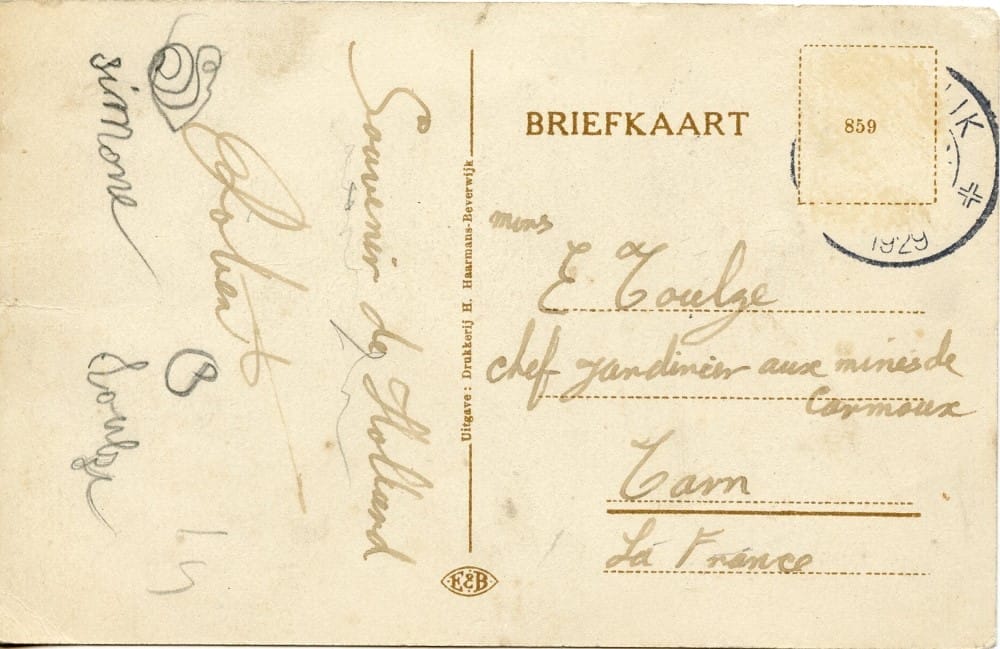 Souvenir de Holland
Robert
simone
8
Uitgave: Drukkerij H. Haarmans-Beverwijk
E&B
BRIEFKAART
859
IJK
1929
mons
E Toulze
chef jardinier aux mines de
Carmaux
Tarn
La France